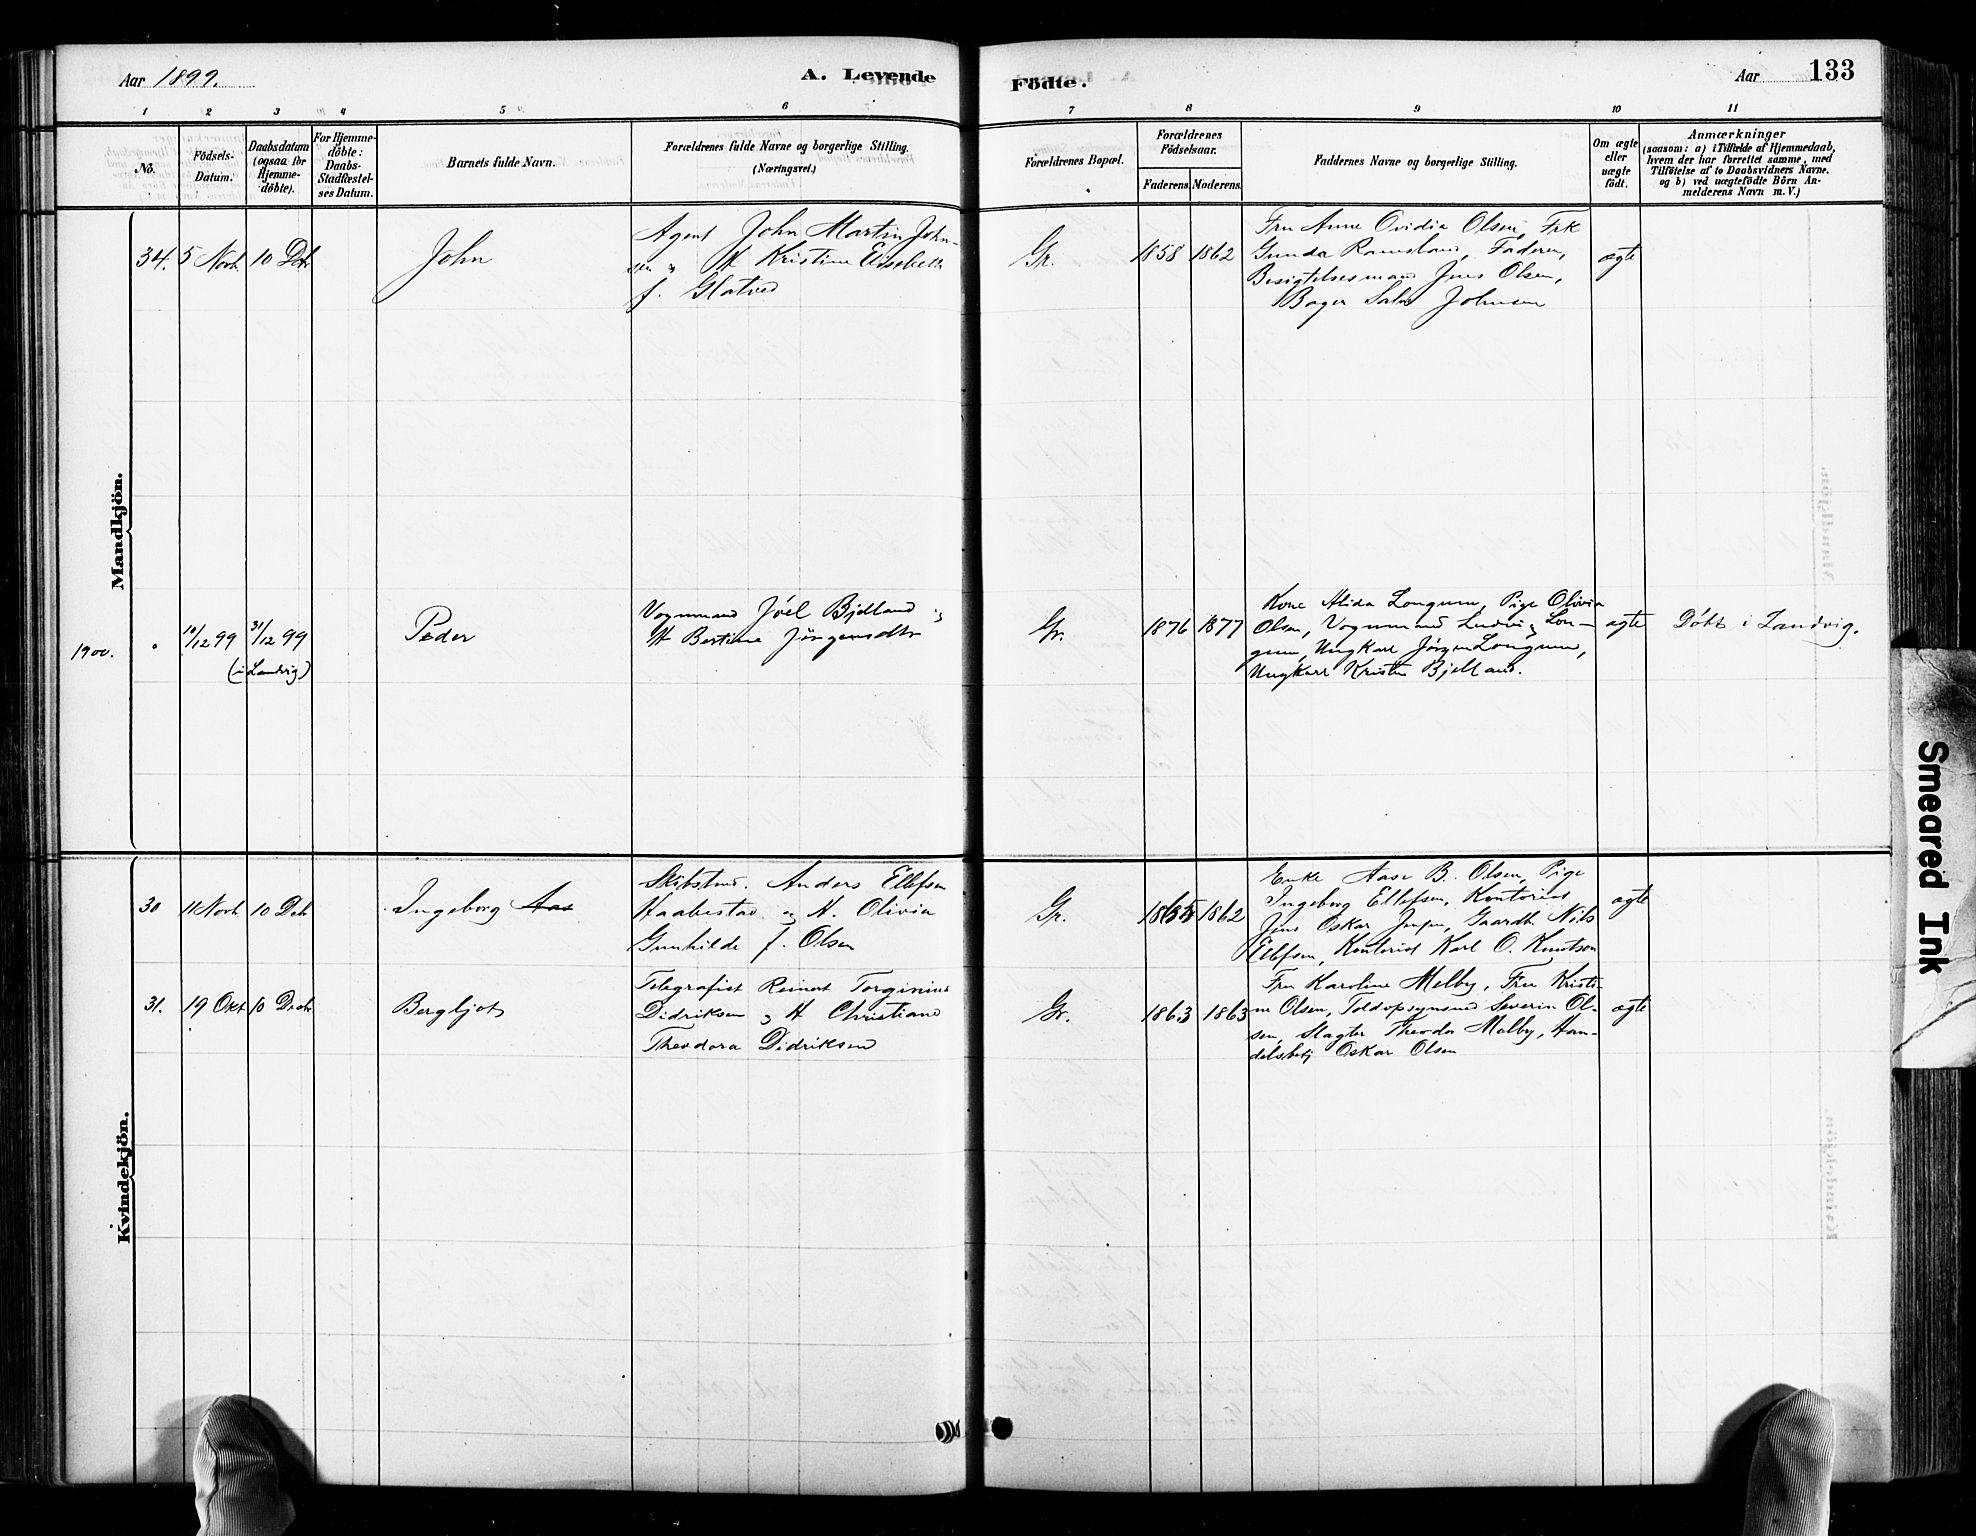 Aar 1899.
A. Levende
Fødte.
Aar
133
1 2 3 4 5 6 7 8 9 10 11
No.
Fødsels-
Datum.
Daabsdatum
(ogsaa for
Hjemme-
døbte).
For Hjemme-
døbte:
Daabs-
Stadfæstel-
ses Datum.
Barnets fulde Navn.
Forældrenes fulde Navne og borgerlige Stilling.
(Næringsvei.)
Forældrenes Bopæl.
Forældrenes
Fødselsaar.
Faderens.
Moderens.
Faddernes Navne og borgerlige Stilling.
Om ægte
eller
uægte
født.
Anmærkninger
(saasom: a) i Tilfælde af Hjemmedaab,
hvem der har forrettet samme, med
Tilføielse af to Daabsvidners Navne.
og b) ved uægtefødte Børn An-
melderens Navn m. V.)
Mandkjön.
34. 5 Novb. 10 Dcb.
John
Agent John Martin John-
sen og H Kristine Elisebeth
f. Glatved
Gr.
1858 1862
Fru Anne Ovidia Olsen, Frk
Gunda Ramsland, Faderen,
Besigtelsesmand Jens Olsen,
Bager Salve Johnsen
ægte
1900.
10/12 99
31/12 99
(i Landvig)
Peder
Vognmand Jóel Bjelland og
H Bertine Jørgensdtr
Gr.
1876 1877
Kone Alida Longum, Pige Olivia
Olsen, Vognmand Ludvig Lon-
gum, Ungkarl Jørgen Longum,
Ungkarl Kristen Bjelland.
ægte
Døbt i Landvig.
Kvindekjön.
30 11 Novb. 10 Dcb
Ingeborg Aas
Skibstmd. Anders Ellefsen
Haabestad og H. Olivia
Gunhilde f. Olsen
Gr.
1855 1862
Enke Aase B. Olsen, Pige
Ingeborg Ellefsen, Kontorist
Jens Oskar Jensen, Gaardb. Nils
Ellefsen, Kontorist Karl O. Knutson
ægte
31. 19 Okt 10 Decbr
Bergljot
Telegrafist Reinert Torginius
Didriksen og H Christiane
Theodora Didriksen
Gr.
1863 1863
Fru Karoline Melby, Fru Kristi-
ne Olsen, Toldopsynsmd Severin Ol-
sen, Slagter Theodor Melby, Han-
delsbetj Oskar Olsen
ægte
Smeared Ink